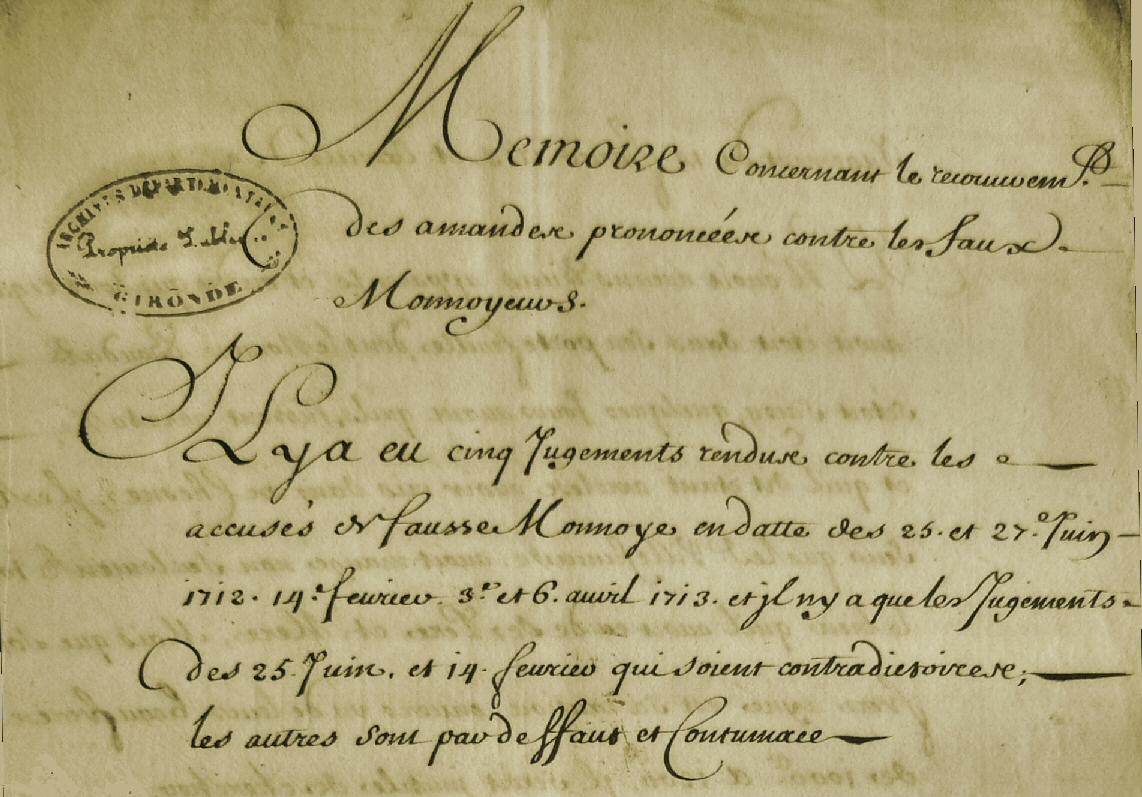 Memoire Concernant le recouuvem.t
des amandes prononcéés contre les faux
Monnoyeurs.
ARCHIVES DÉPARTEMENTALES
Propriété Publique
GIRONDE
Il y a eu cinq Jugements rendus contre les
accusés de fausse Monnoye en datte des 25. et 27.e Juin
1712. 14.e feurier. 3.e et 6. auril 1713. et jl ny a que les Jugements
des 25. Juin. et 14. feurier qui soient contradictoires;
les autres sont par deffaut et Contumace